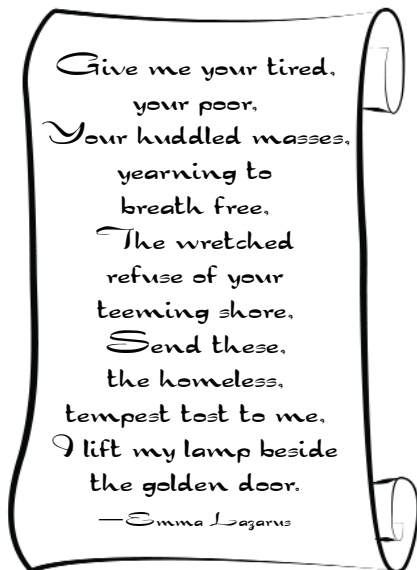 Give me your tired,
your poor,
Your huddled masses,
yearning to
breath free,
The wretched
refuse of your
teeming shore,
Send these,
the homeless,
tempest tost to me,
I lift my lamp beside
the golden door.
—Emma Lazarus